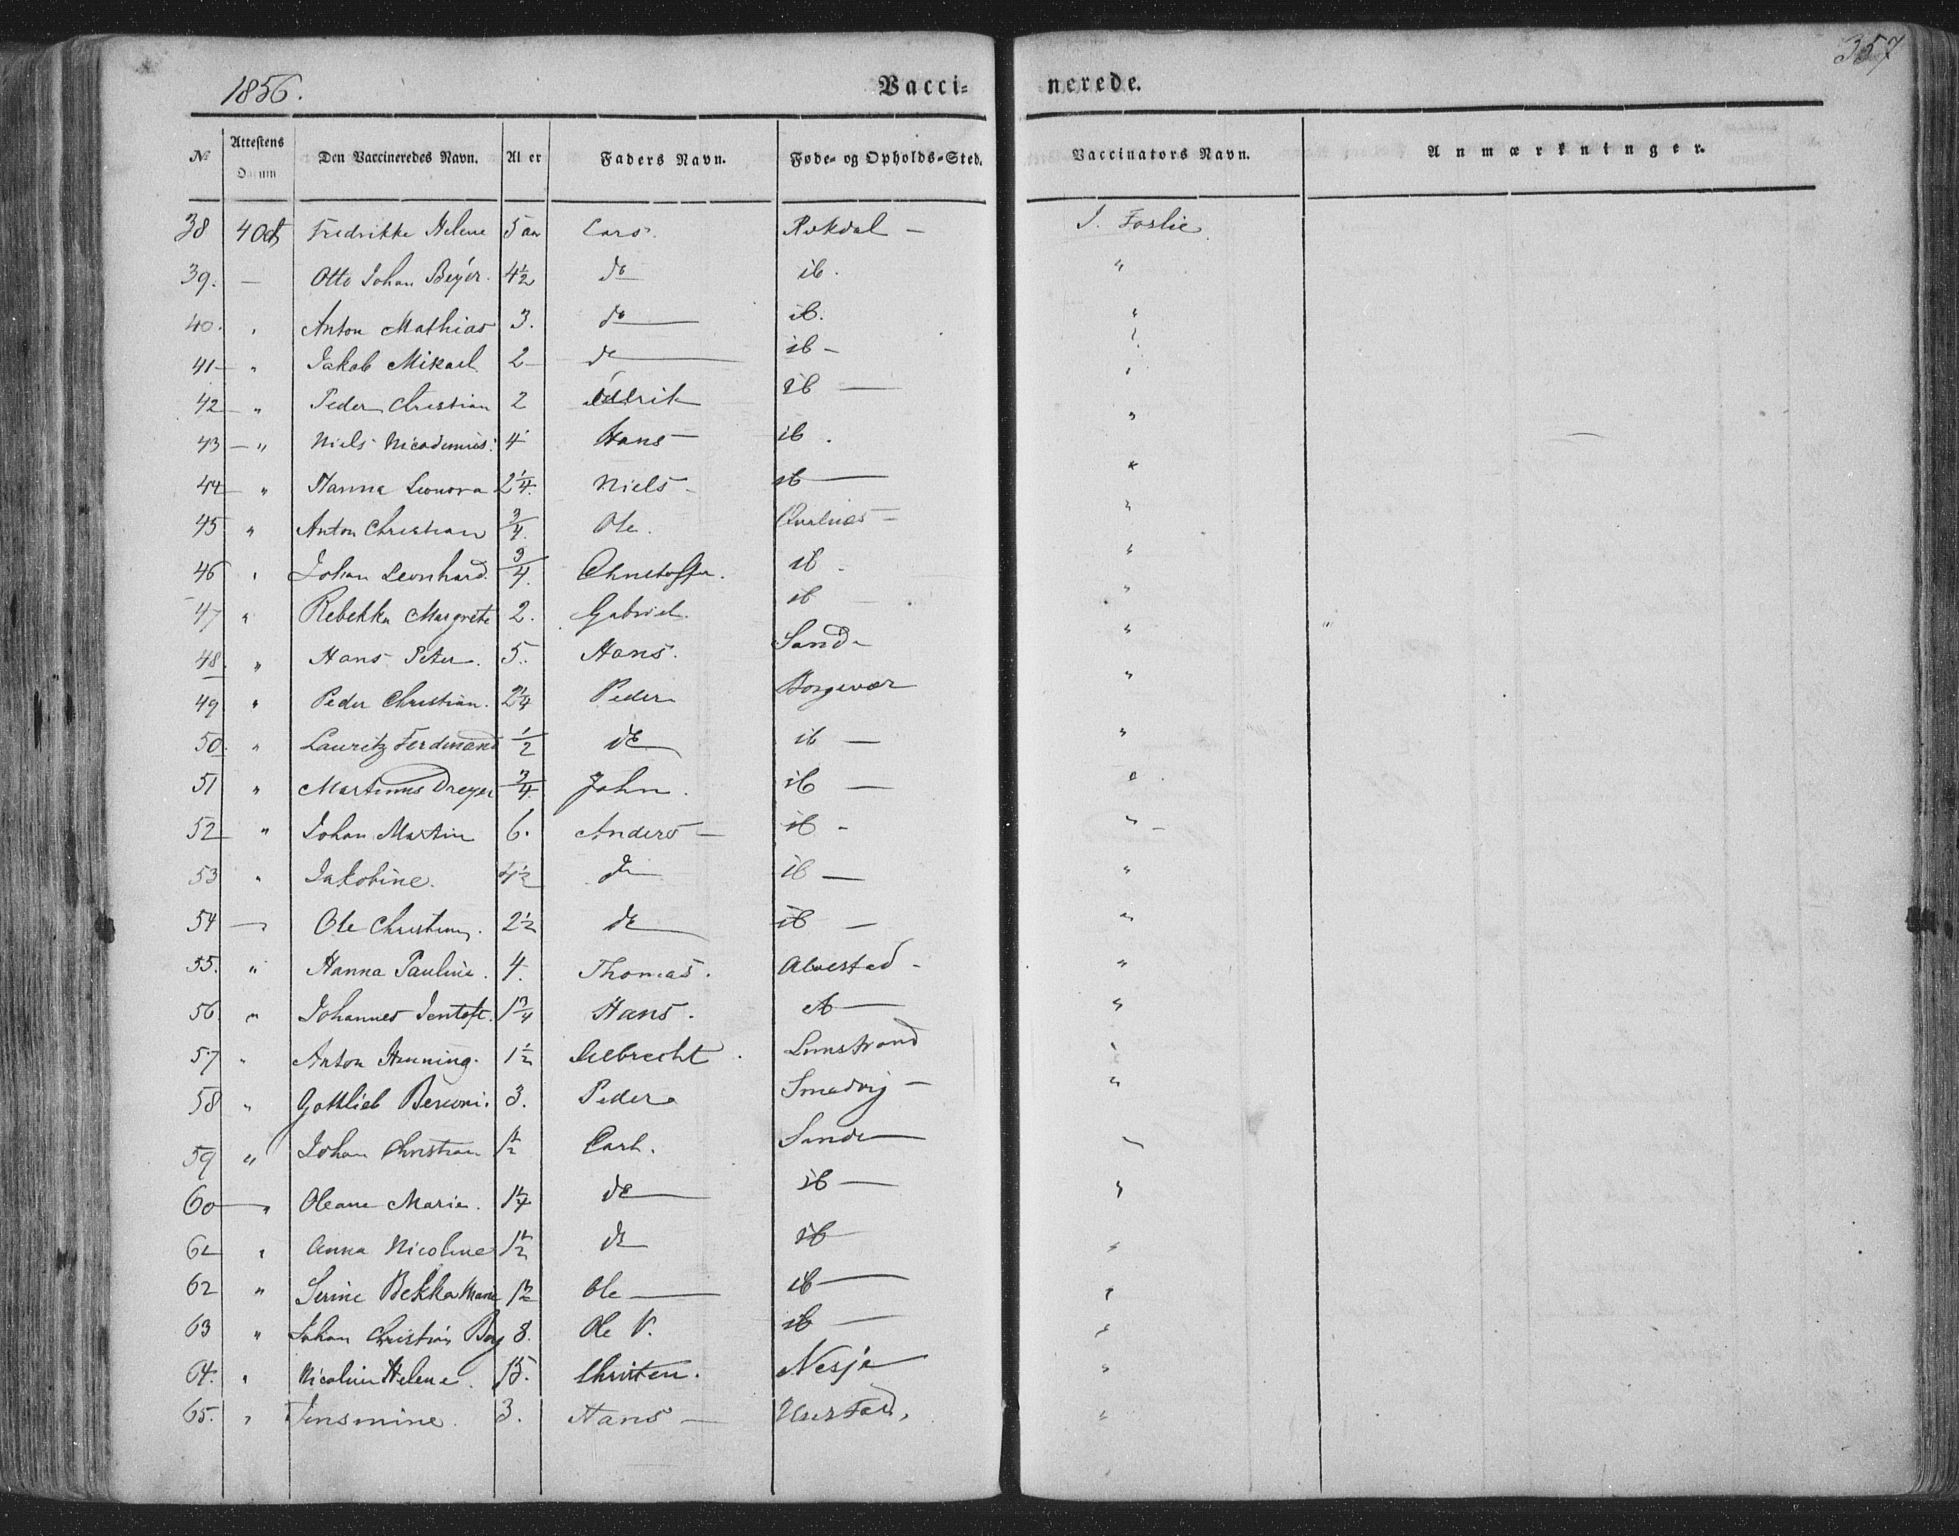 1856. Vacci- nerede. 357
№ Attestens Datum Den Vaccineredes Navn. Alder Faders Navn. Føde- og Opholds-Sted. Vaccinators Navn. Anmærkninger.
38 4 Oct Fredrikke Helene 5 aar Lars. Rekdal — J. Foslie
39. — Otto Johan Beyer. 4½ do ib. "
40. " Anton Mathias 3. do ib. "
41 — " Jakob Mikael 2 do ib — "
42 — " Peder Christian 2 ib — "
43 — " Niels Nicodemus. 4 Hans ib. "
44 — " Hanna Leonora 2¼. Niels ib — "
45 " Anton Christian ¾. Ole. "
46 " Johan Leonhard. ¾. Christoffer. ib. "
47 " Rebekka Margrete 2. Gabriel. ib "
48. " Hans Peter. 5. Hans. Sand "
49 " Peder Christian. 2¼ Peder Borgevær "
50. " Lauritz Ferdinand ½ do ib — "
51 " Martinus Dreyer ¾. John. ib — "
52 — " Johan Martin 6. Anders — ib - "
53 " Jakobine. 4½ do ib — "
54 — Ole Christian. 2½ do ib — "
55. " Hanna Pauline. 4. Thomas. Alvestad - "
56. " Johannes Jentoft. 1¾ Hans. ib — "
57 " Anton Henning. 1½ . "
58 " Gottlieb 3. Peder Smedvig — "
59 " Johan Christian ½ Carl. Sande "
60 — " Oleane Marie. do ib — "
" Anna Nicoline do ib "
62 " Serine Bekka Marie Ole — ib — "
63 " Johan Christian 8. Ole V. ib — "
64. " Nicoline Helene. 15. Christen. Nesje "
65. " Jensmine. 3. Hans — "